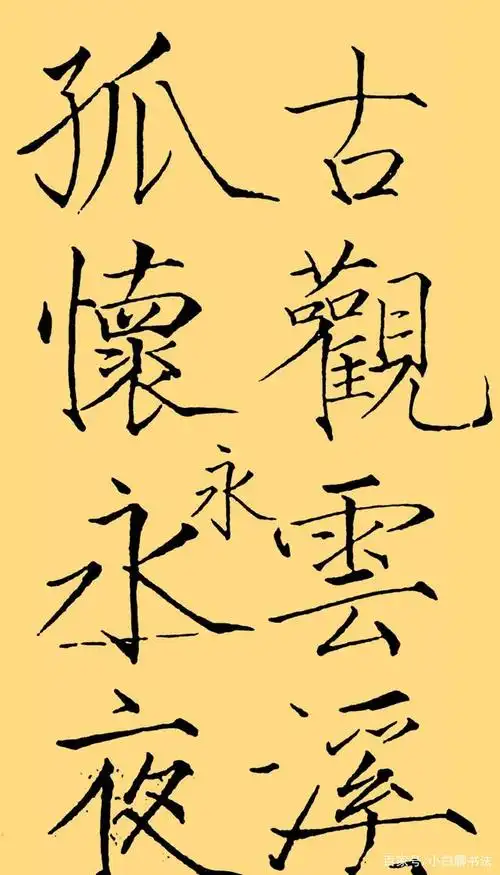 古觀雲溪
孤懷永夜
永
百家号/小白聊书法